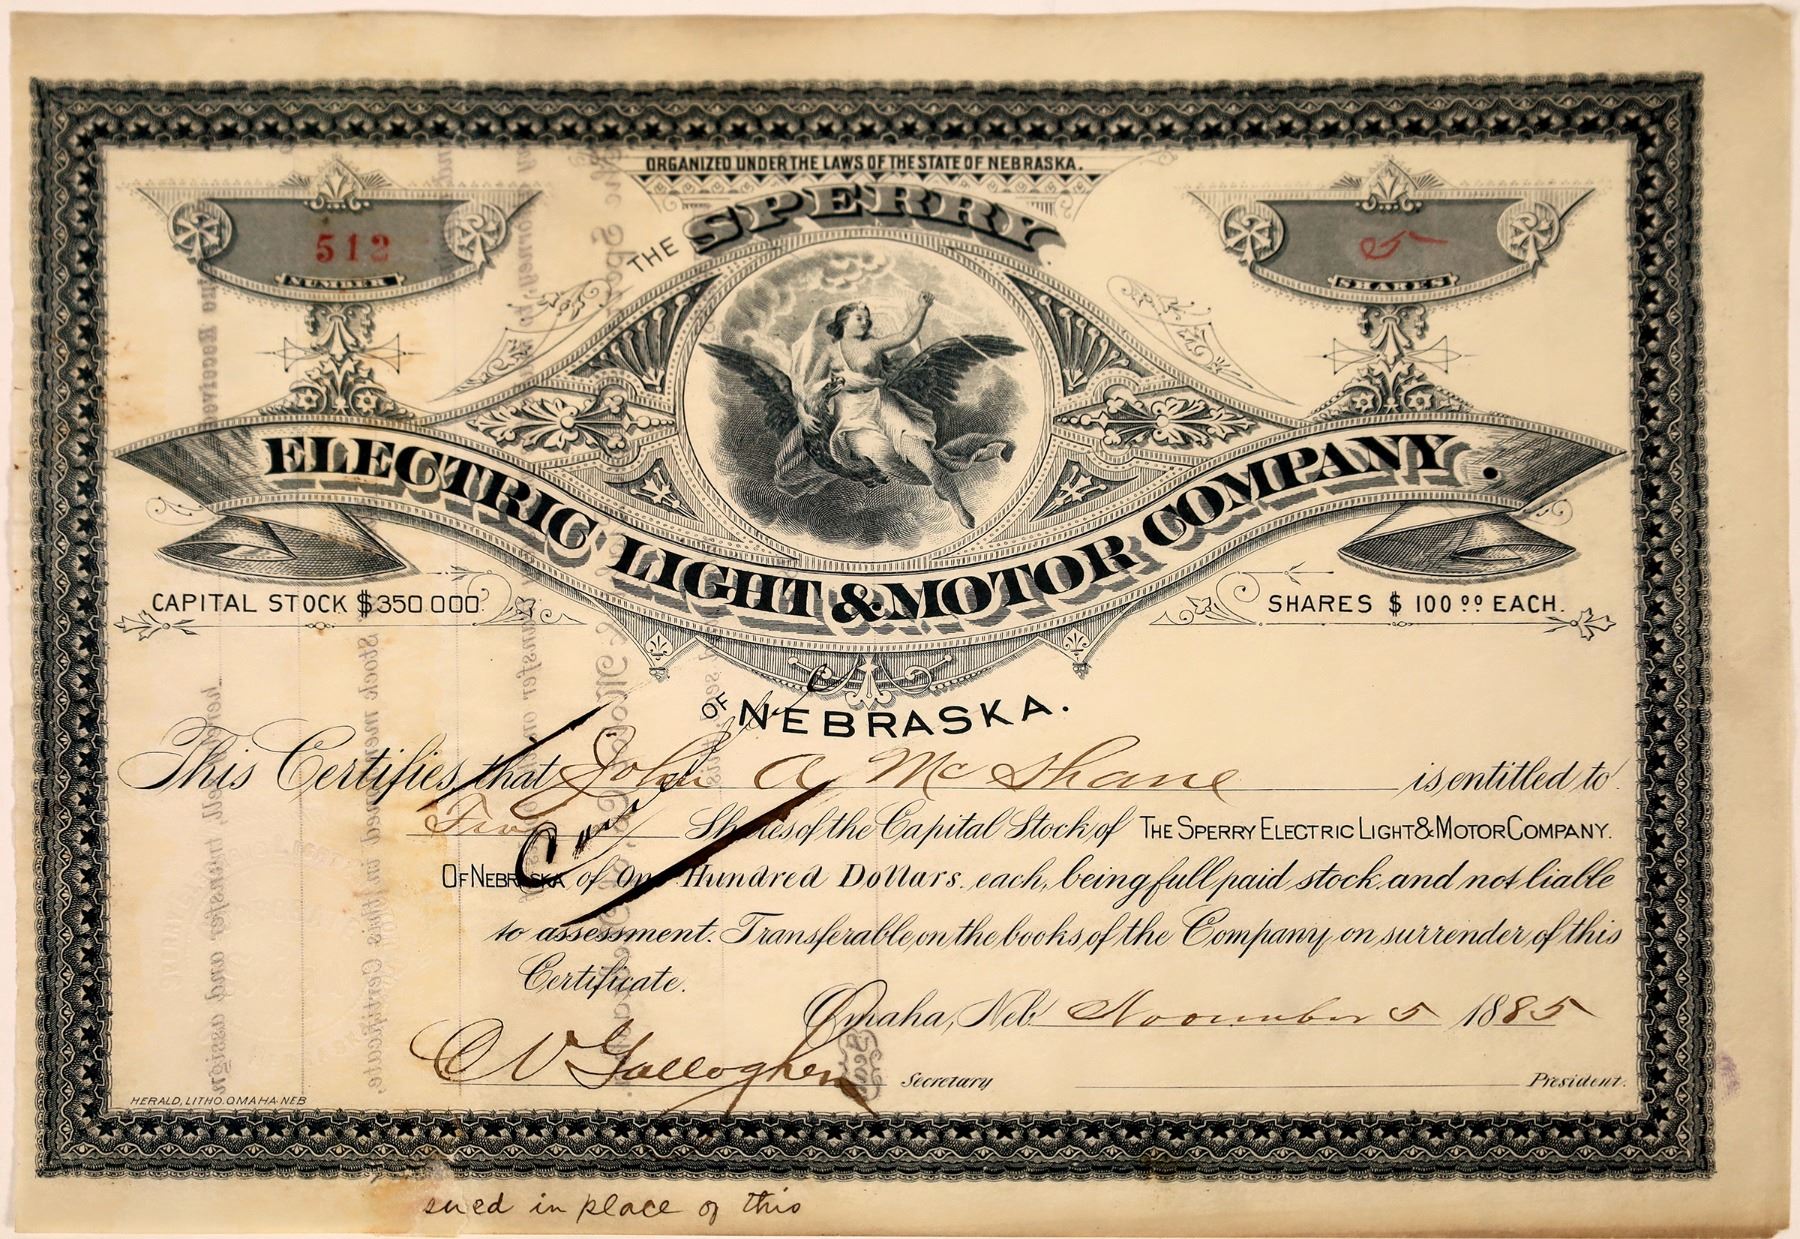 ORGANIZED UNDER THE LAWS OF THE STATE OF NEBRASKA.
512
NUMBER
5
SHARES
THE SPERRY
ELECTRIC LIGHT & MOTOR COMPANY.
CAPITAL STOCK $350.000.
SHARES $ 100 00 EACH.
OF NEBRASKA.
This Certifies that John A McShane is entitled to
Five Shares of the Capital Stock of THE SPERRY ELECTRIC LIGHT & MOTOR COMPANY.
OF NEBRASKA of One Hundred Dollars each, being full paid stock and not liable
to assessment. Transferable on the books of the Company on surrender of this
Certificate.
Omaha, Neb. November 5 1885
C V Gallagher Secretary President.
HERALD, LITHO. OMAHA. NEB
sued in place of this